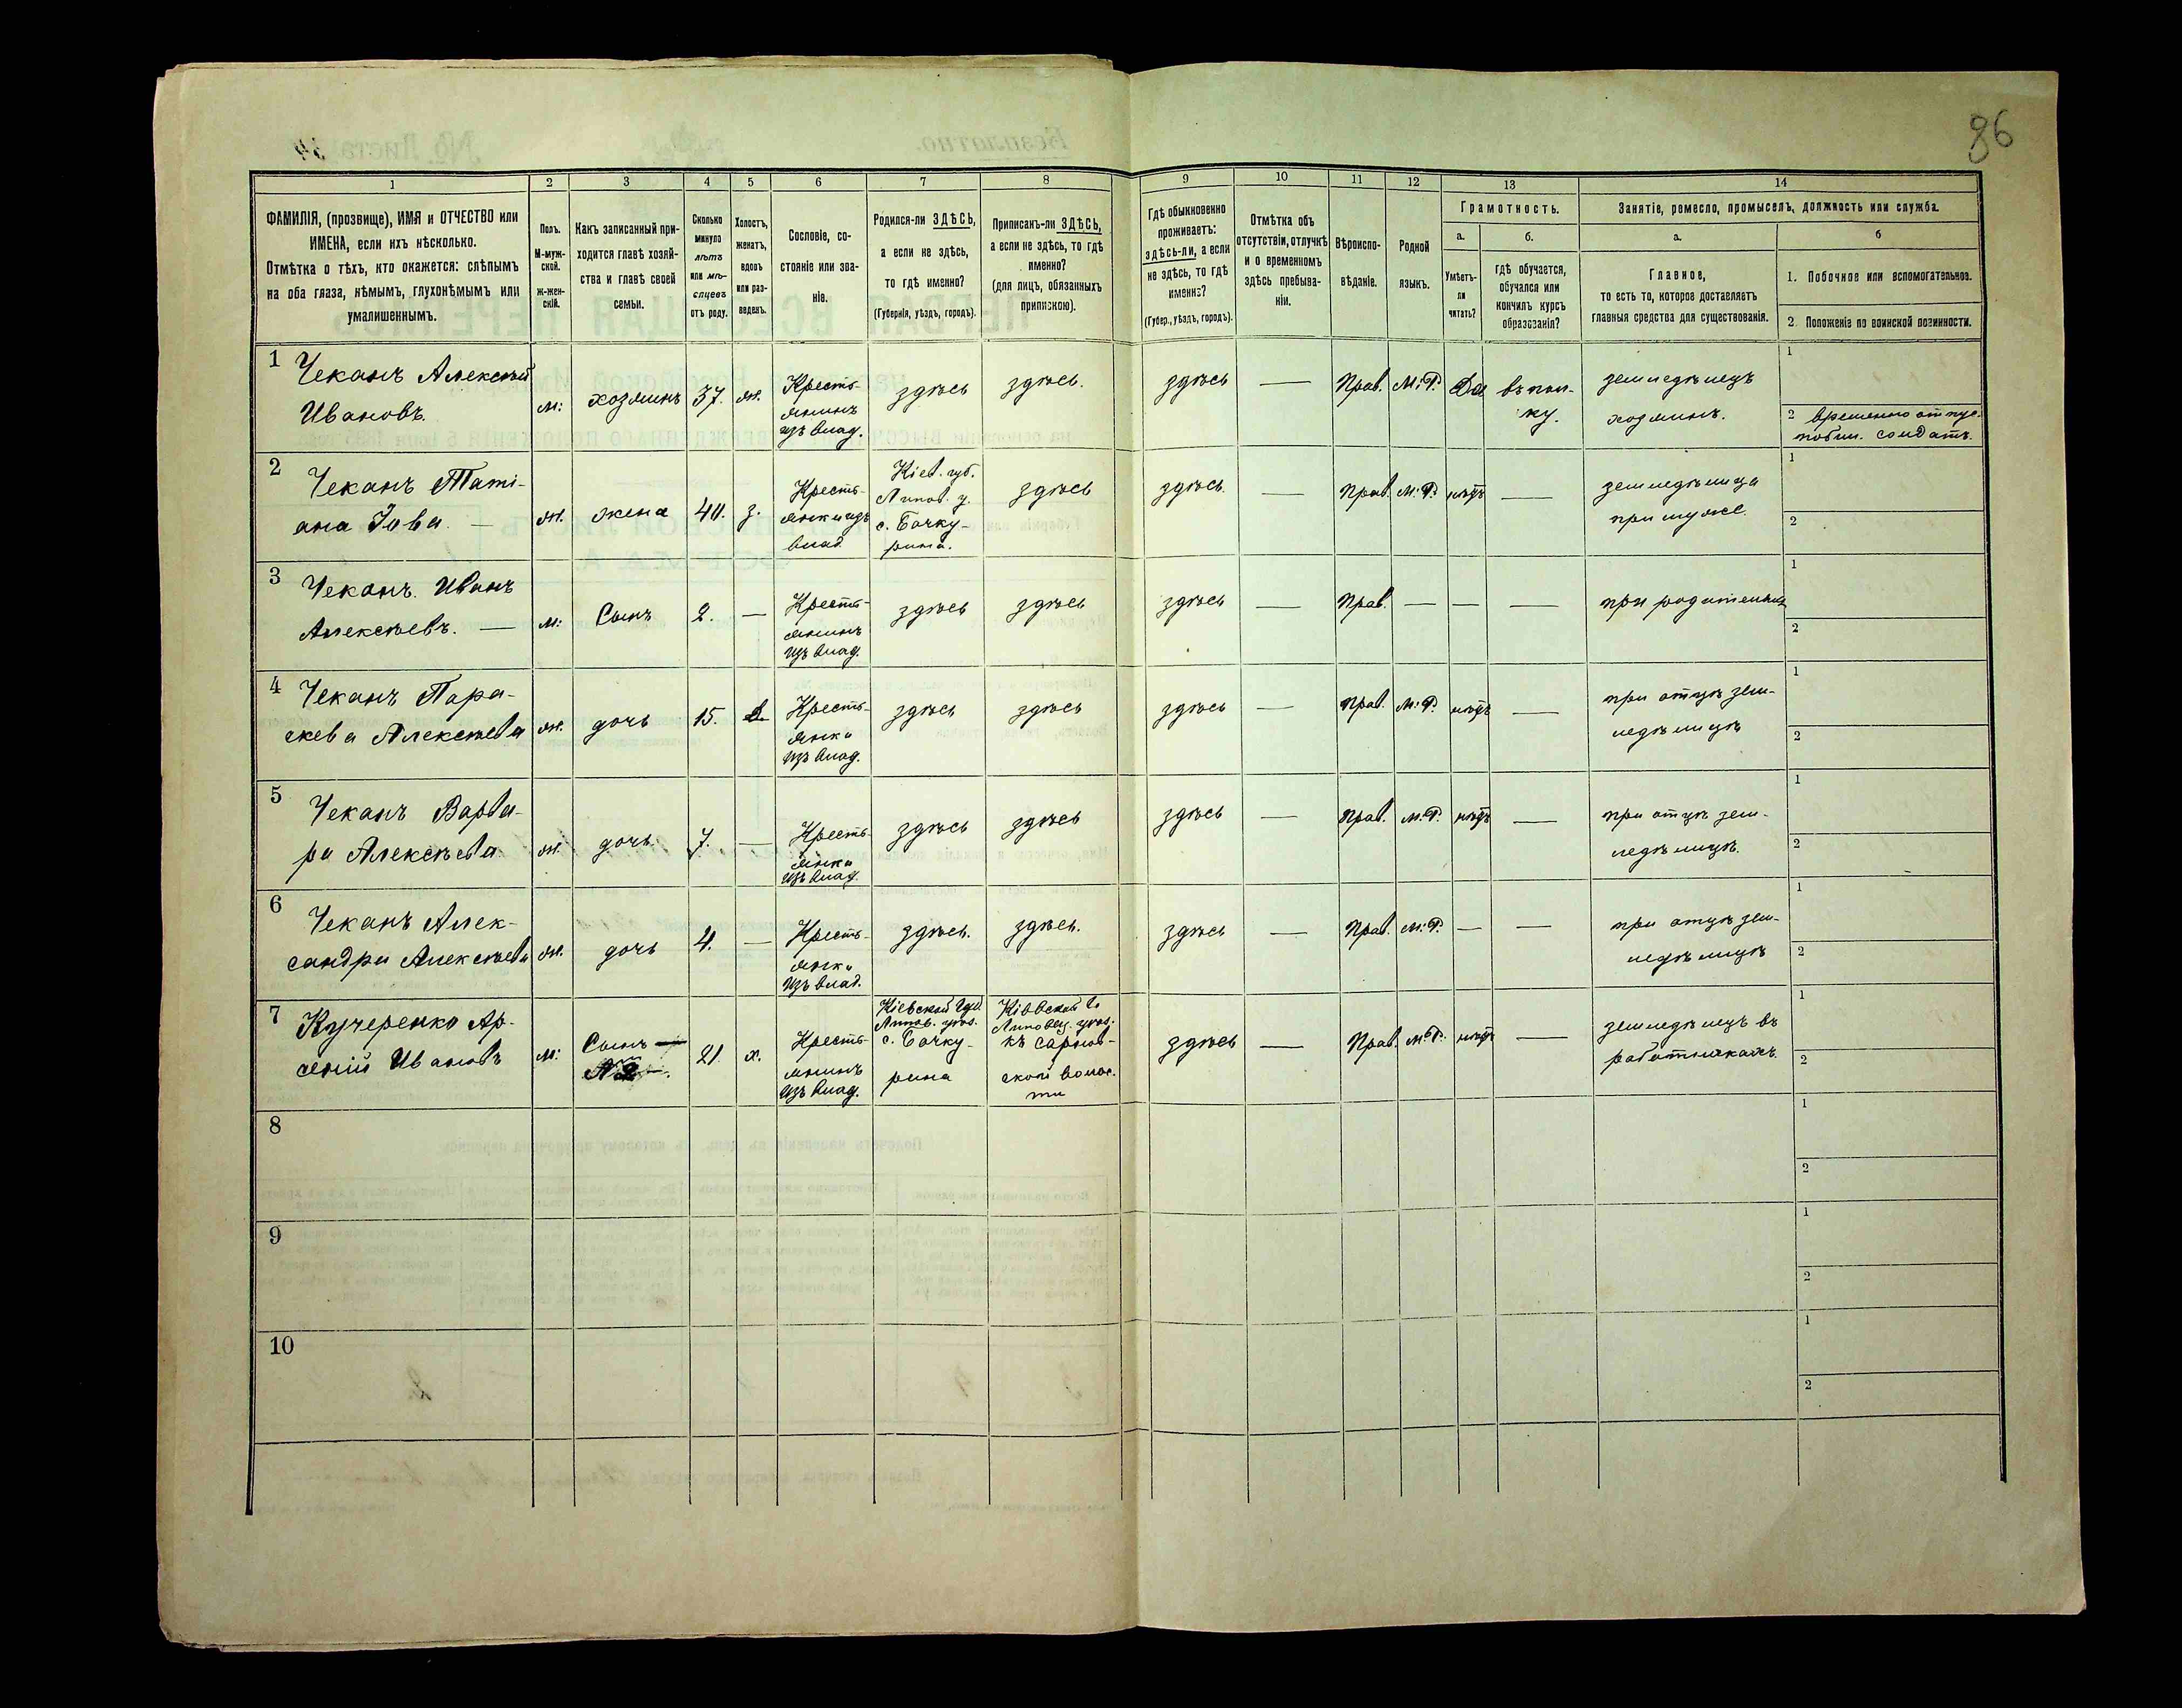 86
1 2 3 4 5 6 7 8 9 10 11 12 13 14
ФАМИЛІЯ, (прозвище), ИМЯ и ОТЧЕСТВО или
ИМЕНА, если ихъ нѣсколько.
Отмѣтка о тѣхъ, кто окажется: слѣпымъ
на оба глаза, нѣмымъ, глухонѣмымъ или
умалишеннымъ.
Полъ.
М-муж-
ской.
Ж-жен-
скій.
Какъ записанный при-
ходится главѣ хозяй-
ства и главѣ своей
семьи.
Сколько
минуло
лѣтъ
или мѣ-
сяцевъ
отъ роду.
Холостъ,
женатъ,
вдовъ
или раз-
веденъ.
Сословіе, со-
стояніе или зва-
ніе.
Родился-ли ЗДѢСЬ,
а если не здѣсь,
то гдѣ именно?
(Губернія, уѣздъ, городъ).
Приписанъ-ли ЗДѢСЬ,
а если не здѣсь, то гдѣ
именно?
(для лицъ, обязанныхъ
припискою).
Гдѣ обыкновенно
проживаетъ:
здѣсь-ли, а если
не здѣсь, то гдѣ
именно?
(Губер., уѣздъ, городъ).
Отмѣтка объ
отсутствіи, отлучкѣ
и о временномъ
здѣсь пребыва-
ніи.
Вѣроиспо-
вѣданіе.
Родной
языкъ.
Грамотность.
а.
Умѣетъ-
ли
читать?
б.
гдѣ обучается,
обучался или
кончилъ курсъ
образованія?
Занятіе, ремесло, промыселъ, должность или служба.
а.
Главное,
то есть то, которое доставляетъ
главныя средства для существованія.
б
1. Побочное или вспомогательное.
2. Положеніе по воинской повинности.
1 Чеканъ Алексѣй
Ивановъ.
м:
хозяинъ
37.
ж.
Кресть-
янинъ
изъ влад.
здѣсь
здѣсь.
здѣсь
—
Прав.
М:Р.
Да
въ пол-
ку.
земледѣлецъ
хозяинъ.
1
2 временно отпус.
солдатъ.
2 Чеканъ Таті-
ана Іова —
ж.
жена
40.
з.
Кресть-
янка изъ
влад.
Кіев. губ.
Липов. у.
с. Бачку-
рина.
здѣсь
здѣсь.
—
Прав.
М:Р.
нѣтъ
—
земледѣлица
при мужѣ.
1
2
3 Чеканъ Иванъ
Алексѣевъ. —
м:
Сынъ
2.
—
Кресть-
янинъ
изъ влад.
здѣсь
здѣсь
здѣсь
—
Прав.
—
—
—
при родителяхъ
1
2
4 Чеканъ Пара-
скева Алексѣева
ж.
дочь
15.
Кресть-
янка
изъ влад.
здѣсь
здѣсь
здѣсь
—
Прав.
М:Р.
нѣтъ
—
при отцѣ зем-
ледѣлицѣ
1
2
5 Чеканъ Варва-
ра Алексѣева
ж.
дочь
7.
—
Кресть-
янка
изъ влад.
здѣсь
здѣсь
здѣсь
—
Прав.
М:Р.
нѣтъ
—
при отцѣ зем-
ледѣлицѣ.
1
2
6 Чеканъ Алек-
сандра Алексѣева
ж.
дочь
4.
—
Кресть-
янка
изъ влад.
здѣсь.
здѣсь.
здѣсь
—
Прав.
М:Р.
—
—
при отцѣ зем-
ледѣлицѣ
1
2
7 Кучеренко Ар-
сеній Ивановъ
м:
Сынъ
№2
21.
х.
Кресть-
янинъ
изъ влад.
Кіевской Губ.
Липов. уѣз.
с. Бачку-
рина
Кіевской г.
Липовец. уѣз.
къ сарнов-
ской волос.
ти
здѣсь
—
Прав.
М:Р.
нѣтъ
—
земледѣлецъ въ
работникахъ.
1
2
8
1
2
9
1
2
10
1
2